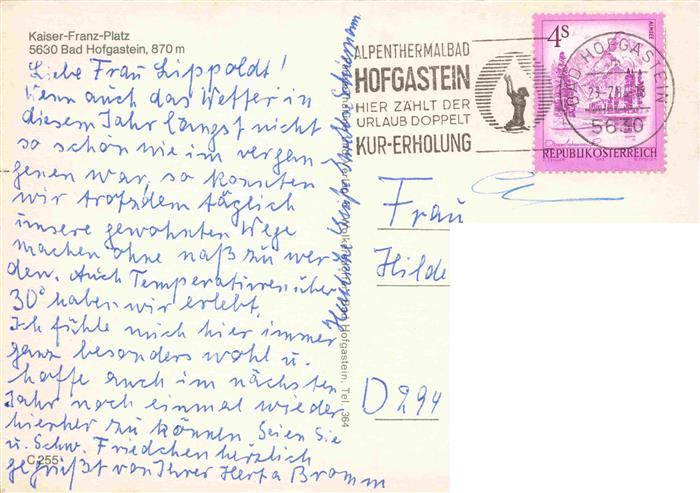 Kaiser-Franz-Platz
5630 Bad Hofgastein, 870 m
Liebe Frau Lippoldt!
Wenn auch das Wetter in
diesem Jahr längst nicht
so schön wie im vergan-
genen war, so konnten
wir trotzdem täglich
unsere gewohnten Wege
machen ohne naß zu wer-
den. Auch Temperaturen über
30° haben wir erlebt.
Ich fühle mich hier immer
ganz besonders wohl u.
hoffe auch im nächsten
Jahr noch einmal wieder
hierher zu können. Seien Sie
u. Schw. Friedchen herzlich
gegrüßt von Ihrer Herta Bromm
C 255
Herzliche
Hofgastein, Tel. 364
ALPENTHERMALBAD
HOFGASTEIN
HIER ZÄHLT DER
URLAUB DOPPELT
KUR-ERHOLUNG
4S
ALMSEE
REPUBLIK ÖSTERREICH
BAD HOFGASTEIN
5630
Frau
Hilde
D 294